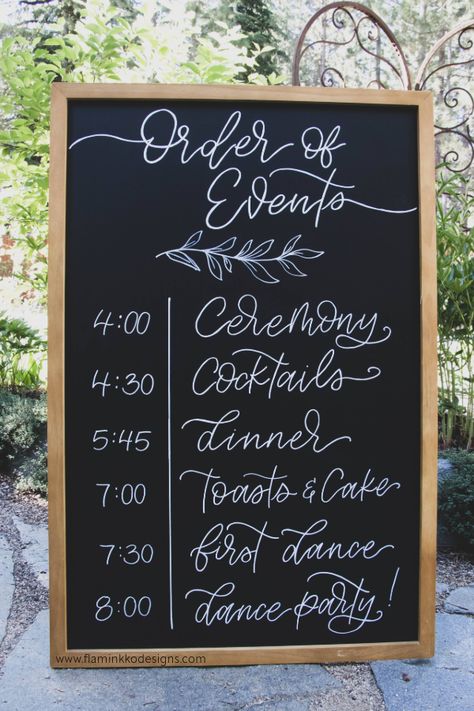 Order of
Events
4:00 Ceremony
4:30 Cocktails
5:45 dinner
7:00 Toasts & Cake
7:30 first dance
8:00 dance party!
www.flaminkkodesigns.com